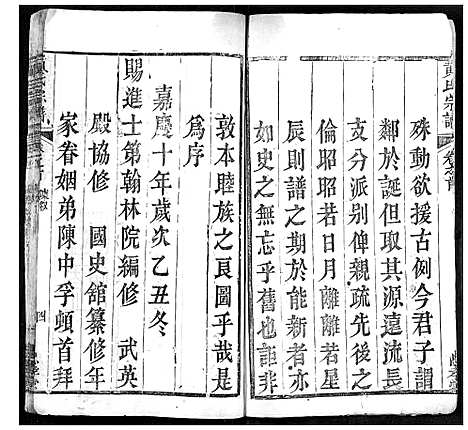 黄氏宗譜
卷之首
殊動欲援古例今君子謂
鄰於誕但取其源遠流長
支分派别俾親疏先後之
倫昭昭若日月離離若星
辰則譜之期於能新者亦
如史之無忘乎舊也詎非
敦本睦族之良圖乎哉是
爲序
嘉慶十年歲次乙丑冬
賜進士第翰林院編修 武英
殿協修 國史館纂修年
家眷姻弟陳中孚頓首拜
四